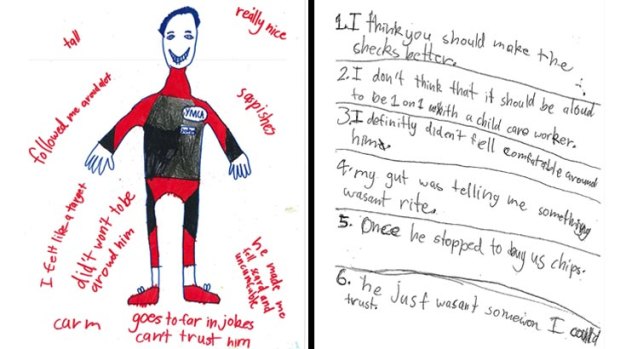 tall
really nice
followed me around alot
saspishes
YMCA
I felt like a target
did't won't to be
around him
he made me
fell scard and
carm
goes to far in jokes
can't trust him
1. I think you should make the
shecks better.
2. I don't think that it should be aloud
to be 1 on 1 with a child care worker.
3. I definitly didn't fell comfatable around
him.
4. my gut was telling me something
wasant rite.
5. Once he stopped to buy us chips.
6. he just wasant somewon I could
trust.